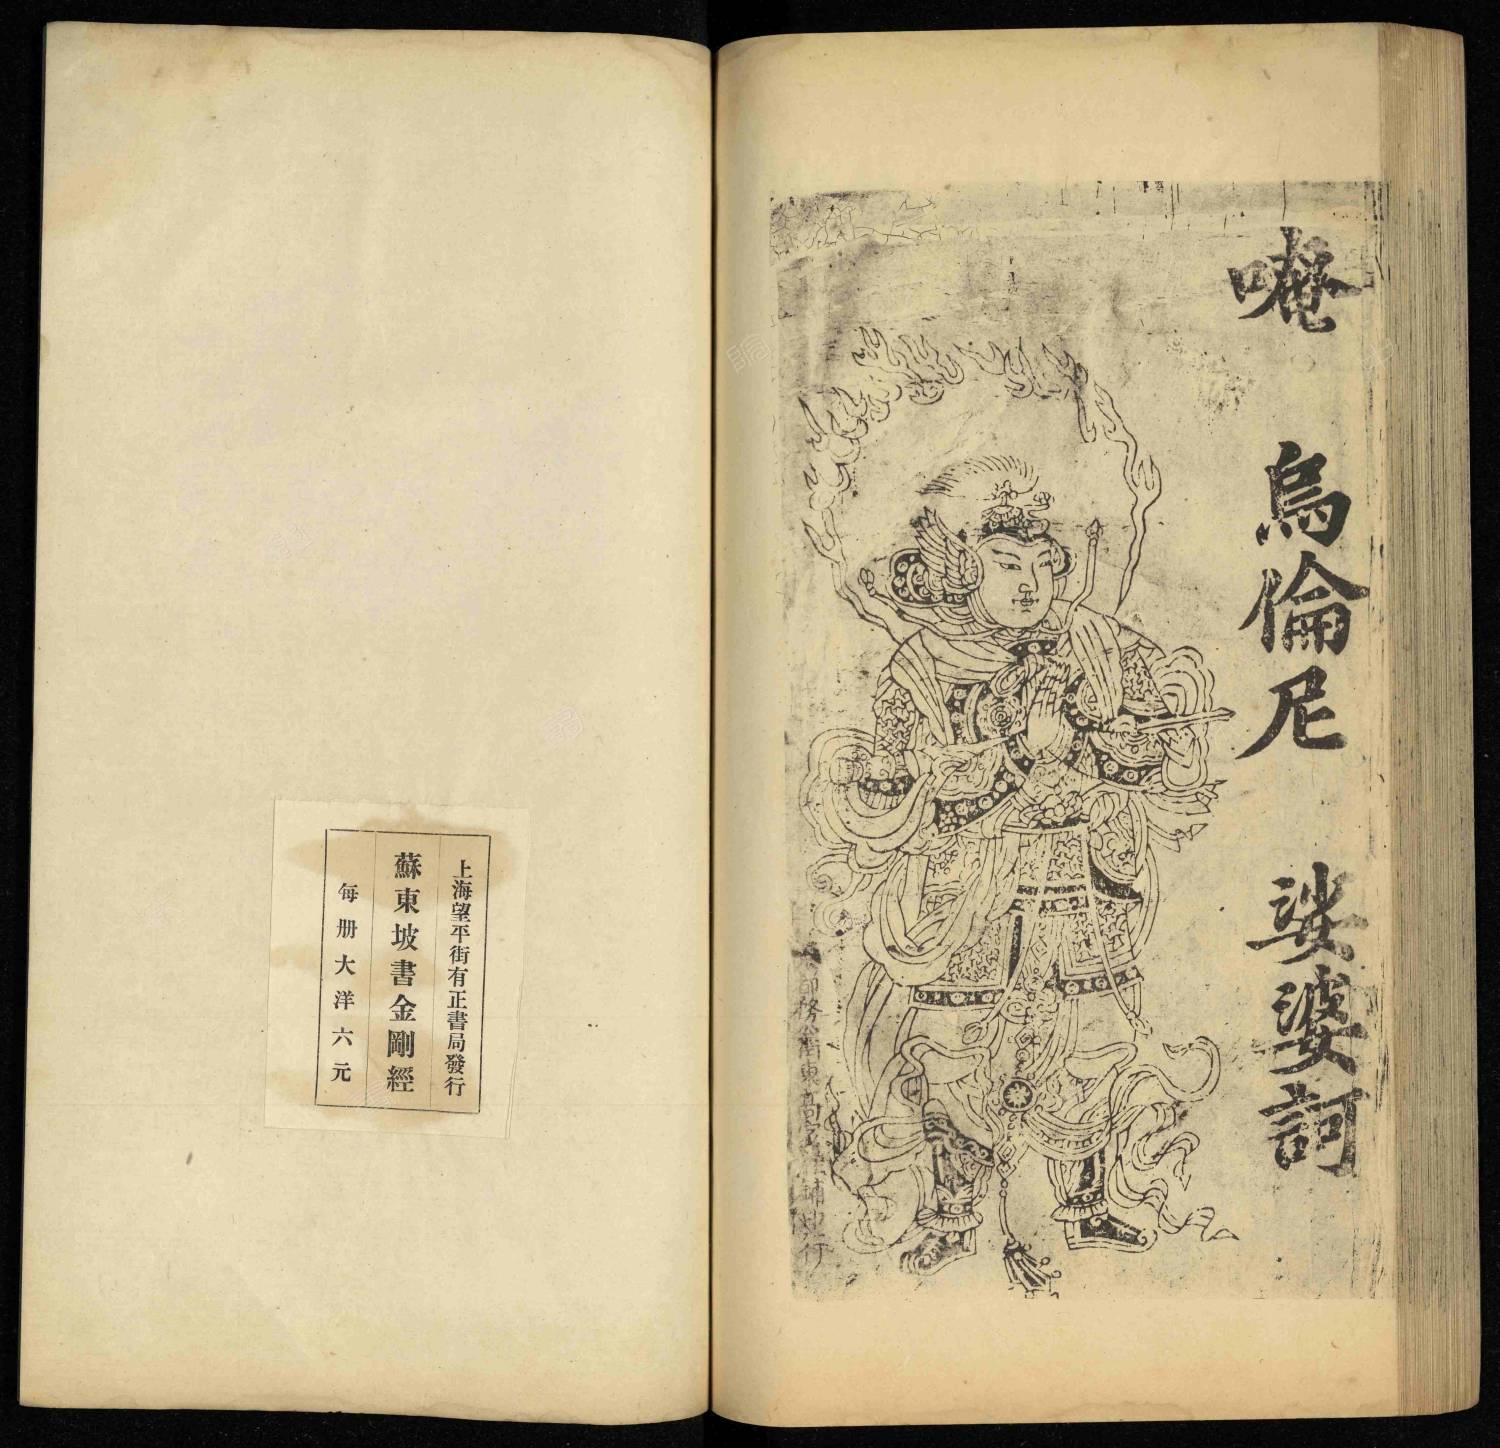 唵 烏倫尼 娑婆訶
都務
上海望平街有正書局發行
蘇東坡書金剛經
每册大洋六元